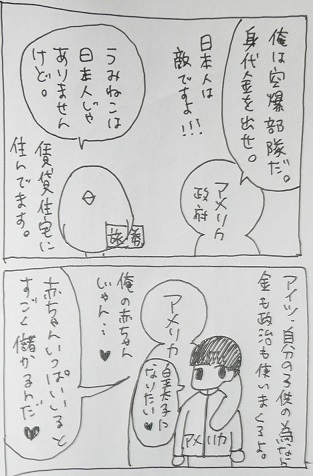 俺は空爆部隊だ。
身代金を出せ。
日本人は
敵ですよ!!!
アメリカ
政府
うみねこは
日本人じゃ
ありません
けど。
賃貸住宅に
住んでます。
旅券
アイツ、自分の子供の為なら
金も政治も使いまくるよ。
アメリカ
俺の赤ちゃん
じゃん…♥
皇太子に
なりたい♥
アメリカ
赤ちゃんいっぱいいると
すごく儲かるんだ♥